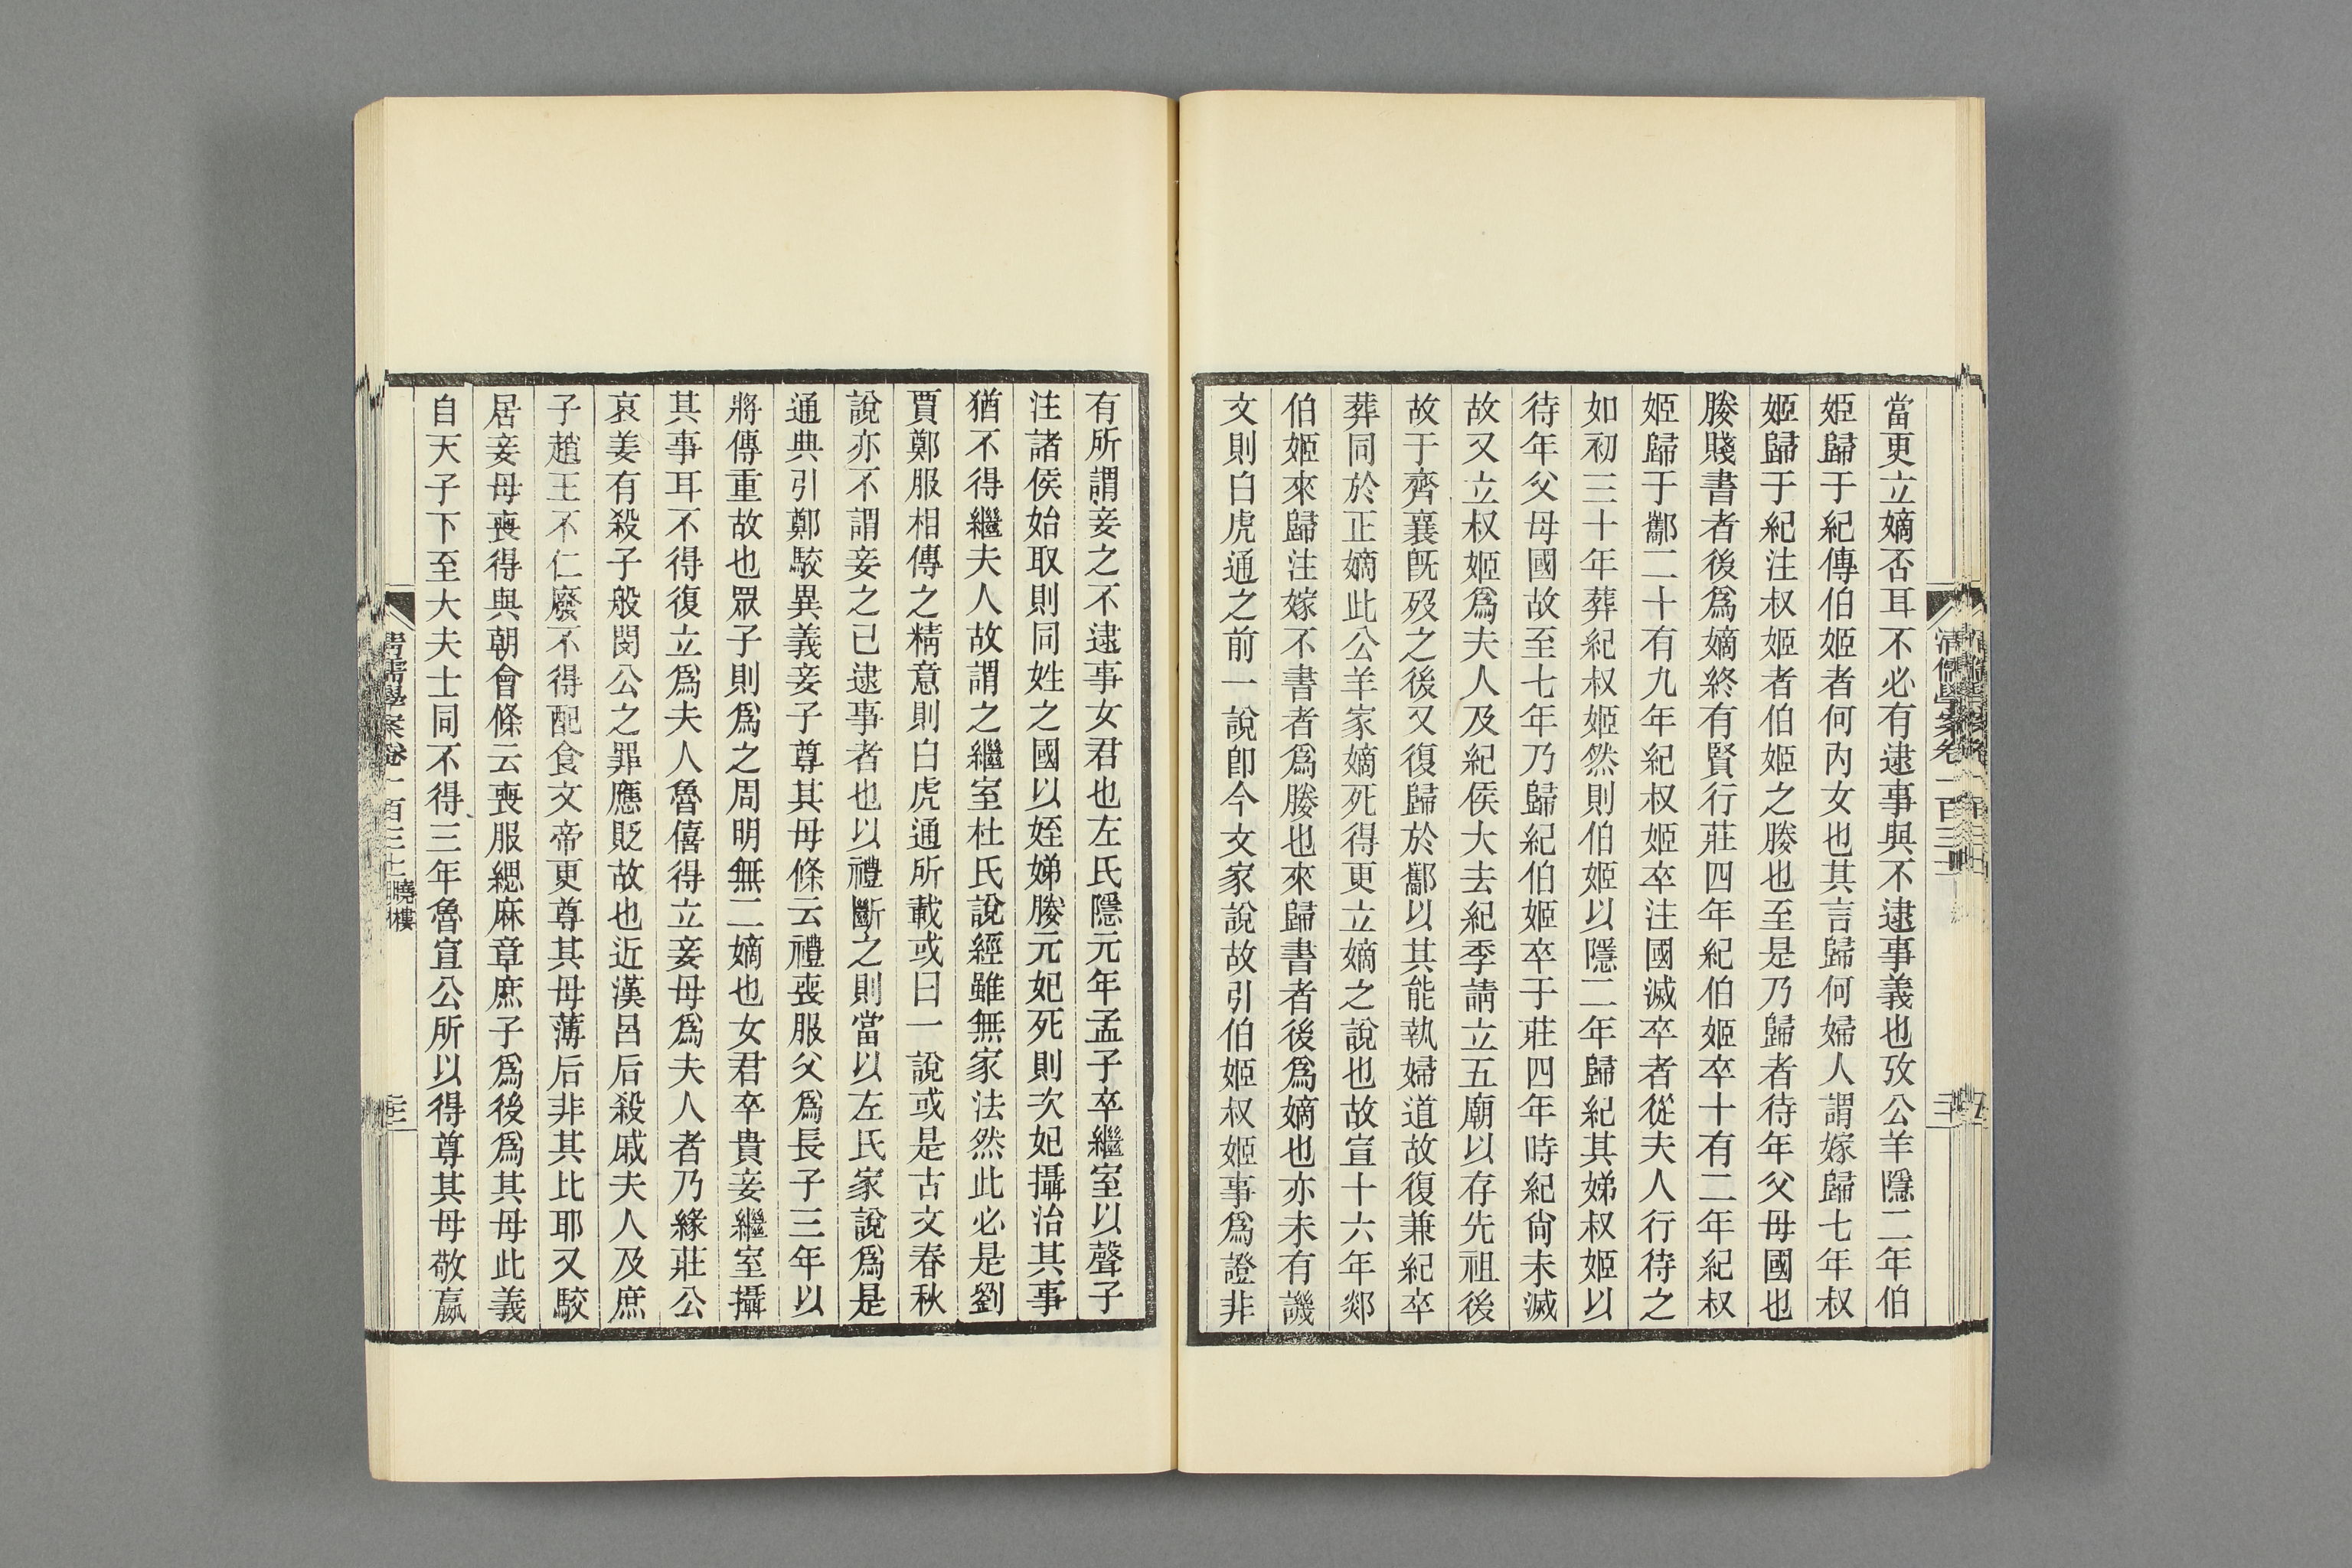 當更立嫡否耳不必有逮事與不逮事義也攷公羊隱二年伯
姬歸于紀傳伯姬者何內女也其言歸何婦人謂嫁歸七年叔
姬歸于紀注叔姬者伯姬之媵也至是乃歸者待年父母國也
媵賤書者後爲嫡終有賢行莊四年紀伯姬卒十有二年紀叔
姬歸于酅二十有九年紀叔姬卒注國滅卒者從夫人行待之
如初三十年葬紀叔姬然則伯姬以隱二年歸紀其娣叔姬以
待年父母國故至七年乃歸紀伯姬卒于莊四年時紀尙未滅
故又立叔姬爲夫人及紀侯大去紀季請立五廟以存先祖後
故于齊襄旣歿之後又復歸於酅以其能執婦道故復兼紀卒
葬同於正嫡此公羊家嫡死得更立嫡之說也故宣十六年郯
伯姬來歸注嫁不書者爲媵也來歸書者後爲嫡也亦未有譏
文則白虎通之前一說卽今文家說故引伯姬叔姬事爲證非
有所謂妾之不逮事女君也左氏隱元年孟子卒繼室以聲子
注諸侯始取則同姓之國以姪娣媵元妃死則次妃攝治其事
猶不得繼夫人故謂之繼室杜氏說經雖無家法然此必是劉
賈鄭服相傳之精意則白虎通所載或曰一說或是古文春秋
說亦不謂妾之已逮事者也以禮斷之則當以左氏家說爲是
通典引鄭駮異義妾子尊其母條云禮喪服父爲長子三年以
將傳重故也眾子則爲之周明無二嫡也女君卒貴妾繼室攝
其事耳不得復立爲夫人魯僖得立妾母爲夫人者乃緣莊公
哀姜有殺子般閔公之罪應貶故也近漢呂后殺戚夫人及庶
子趙王不仁廢不得配食文帝更尊其母薄后非其比耶又駮
居妾母喪得與朝會條云喪服緦麻章庶子爲後爲其母此義
自天子下至大夫士同不得三年魯宣公所以得尊其母敬嬴
清儒學案卷一百三十